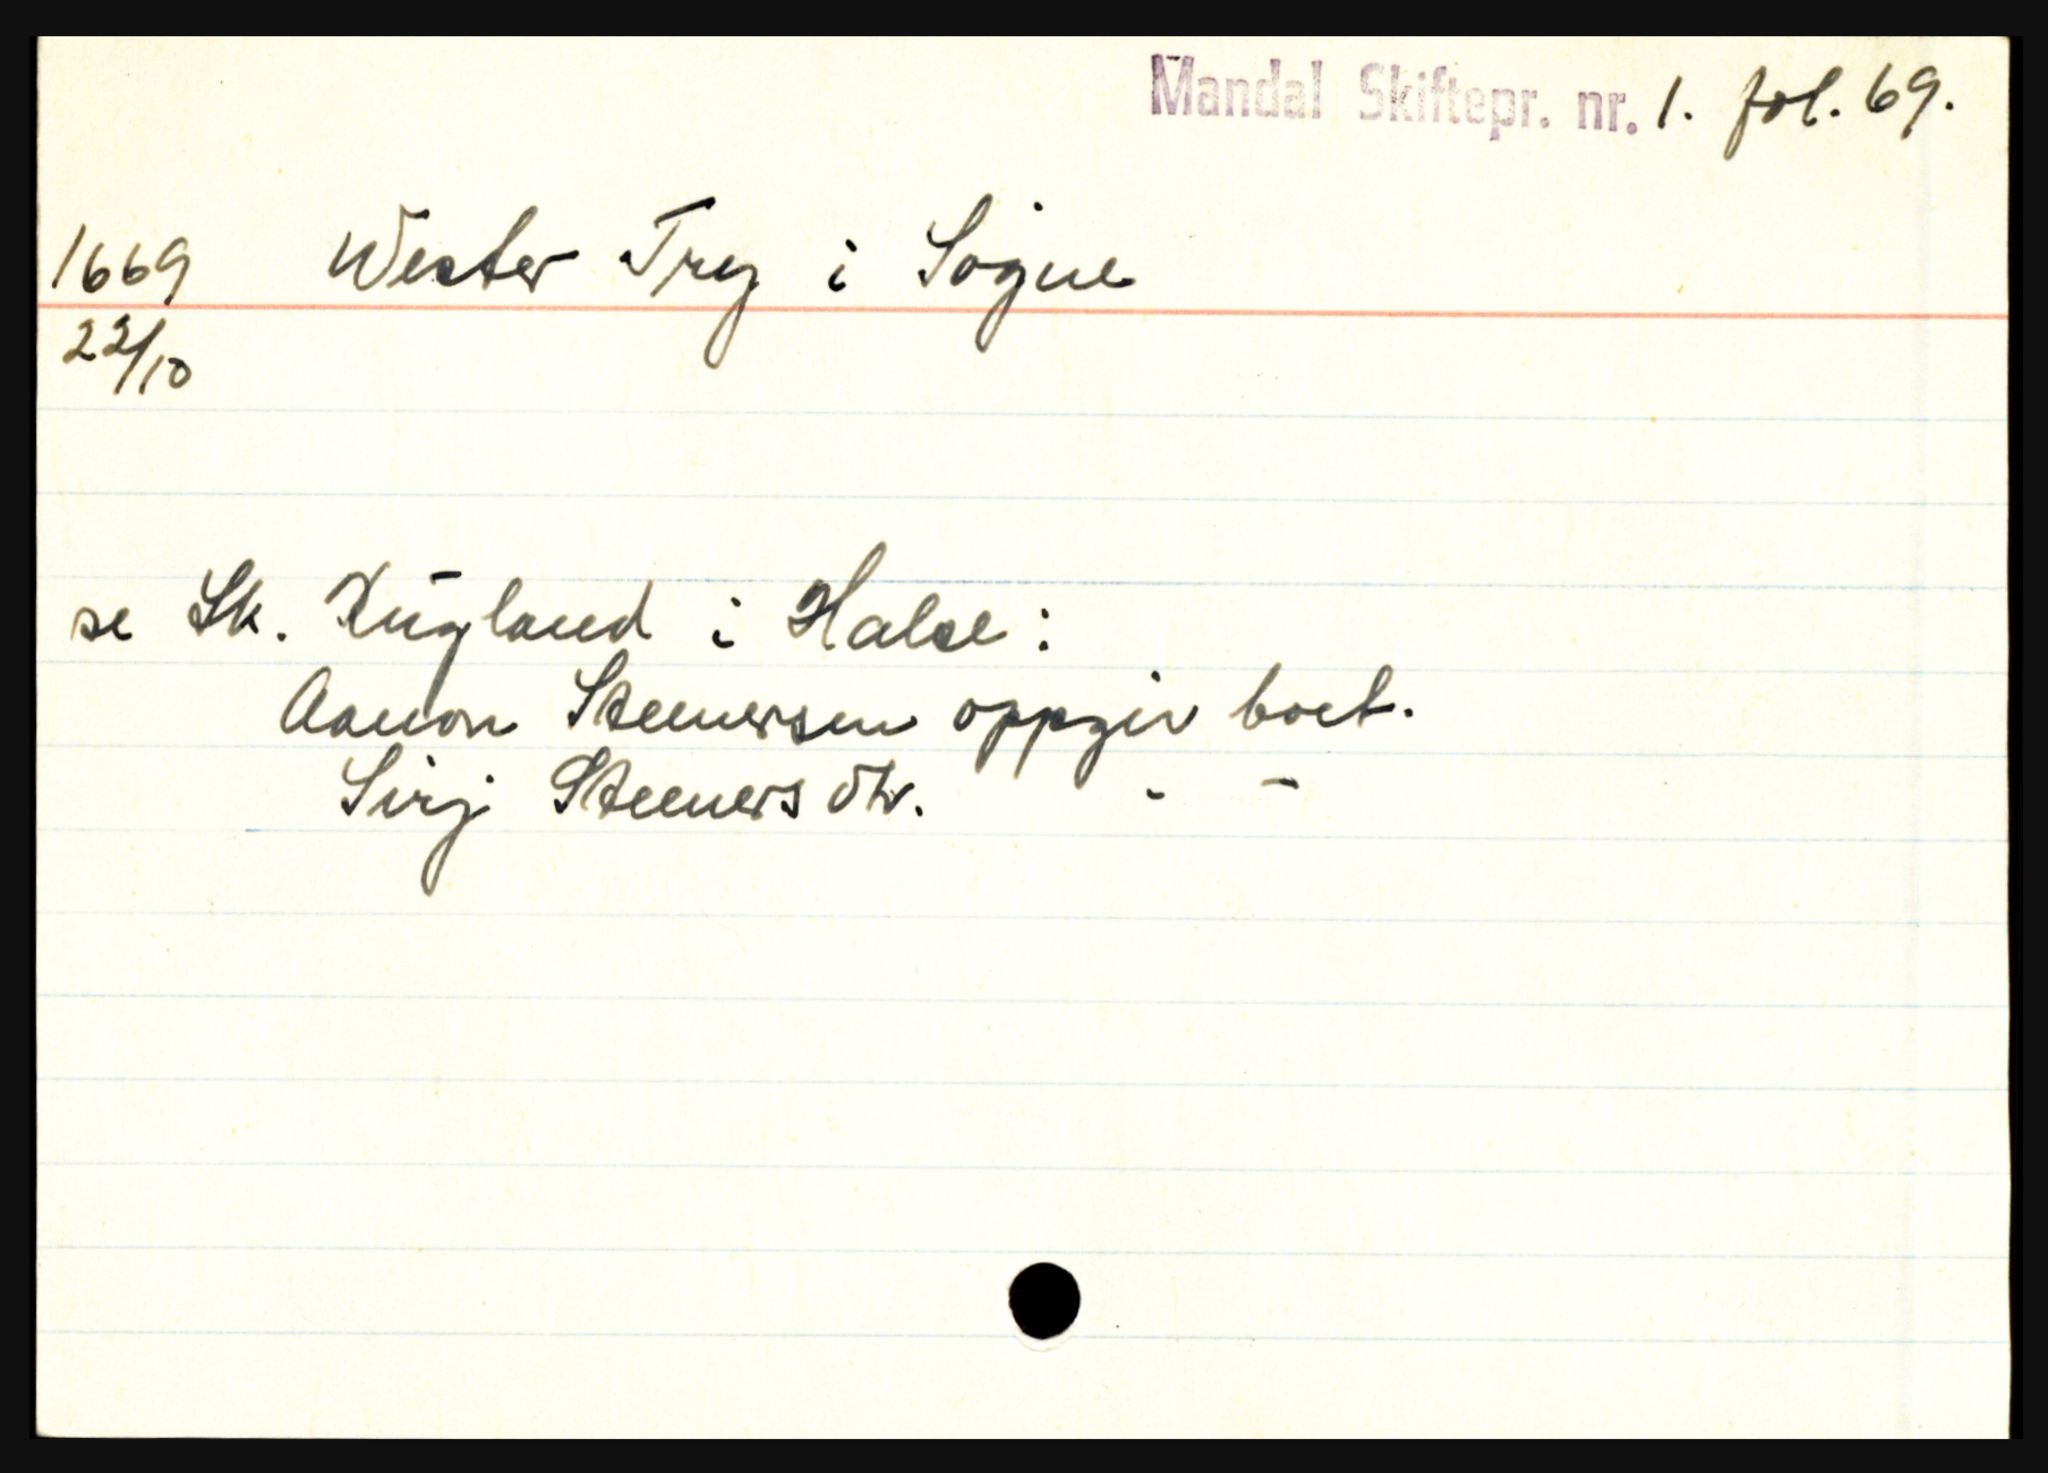 Mandal Skiftepr. nr. 1. fol. 69.
1669 Wester Try i Søgne
22/10
se Sk. Kugland i Halse:
Aanon Steenersen oppgir boet.
Sirj Steenersdtr. - -